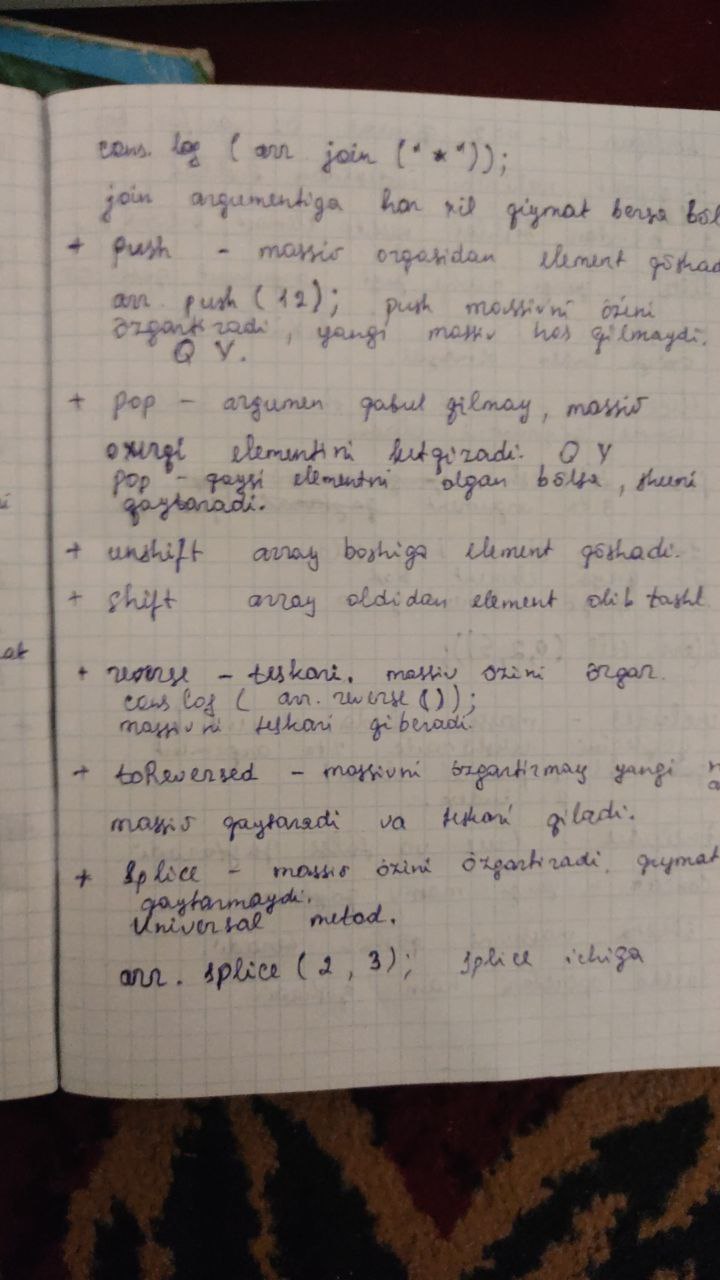 cons. log ( arr join ("*"));
join argumentiga har xil qiymat bersa bõl
+ push - massiv orqasidan element qõshad
arr. push (12); push massivni õzini
õzgartiradi, yangi massiv hos qilmaydi.
Q Y.
+ pop - argumen qabul qilmay, massiv
oxirgi elementini ketgizadi. Q Y
pop - qaysi elementni olgan bõlsa, shuni
qaytaradi.
+ unshift array boshiga element qõshadi.
+ shift array oldidan element olib tashl
at
+ reverse - teskari. massiv õzini õzgar.
cons log ( arr. reverse ());
massivni teskari qiberadi.
+ toReversed - massivni õzgartirmay yangi
massiv qaytaradi va teskari qiladi.
+ Splice - massiv õzini õzgartiradi. qiymat
qaytarmaydi.
Universal metod.
arr. splice (2, 3); splice ichiga